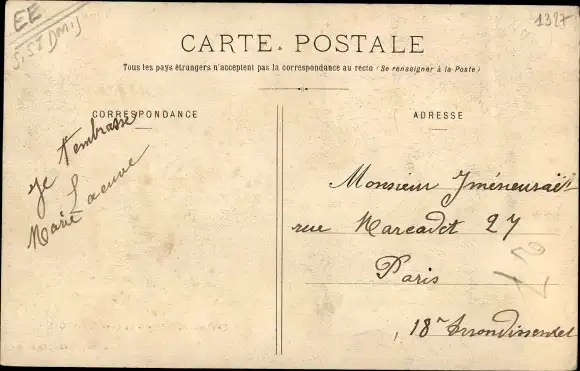 EE
S. ST DENIS
1327
CARTE POSTALE
Tous les pays étrangers n'acceptent pas la correspondance au recto (Se renseigner à la Poste)
CORRESPONDANCE
Je t'embrasse
Marie
ADRESSE
Monsieur
rue Marcadet 27
Paris
18e Arrondissement